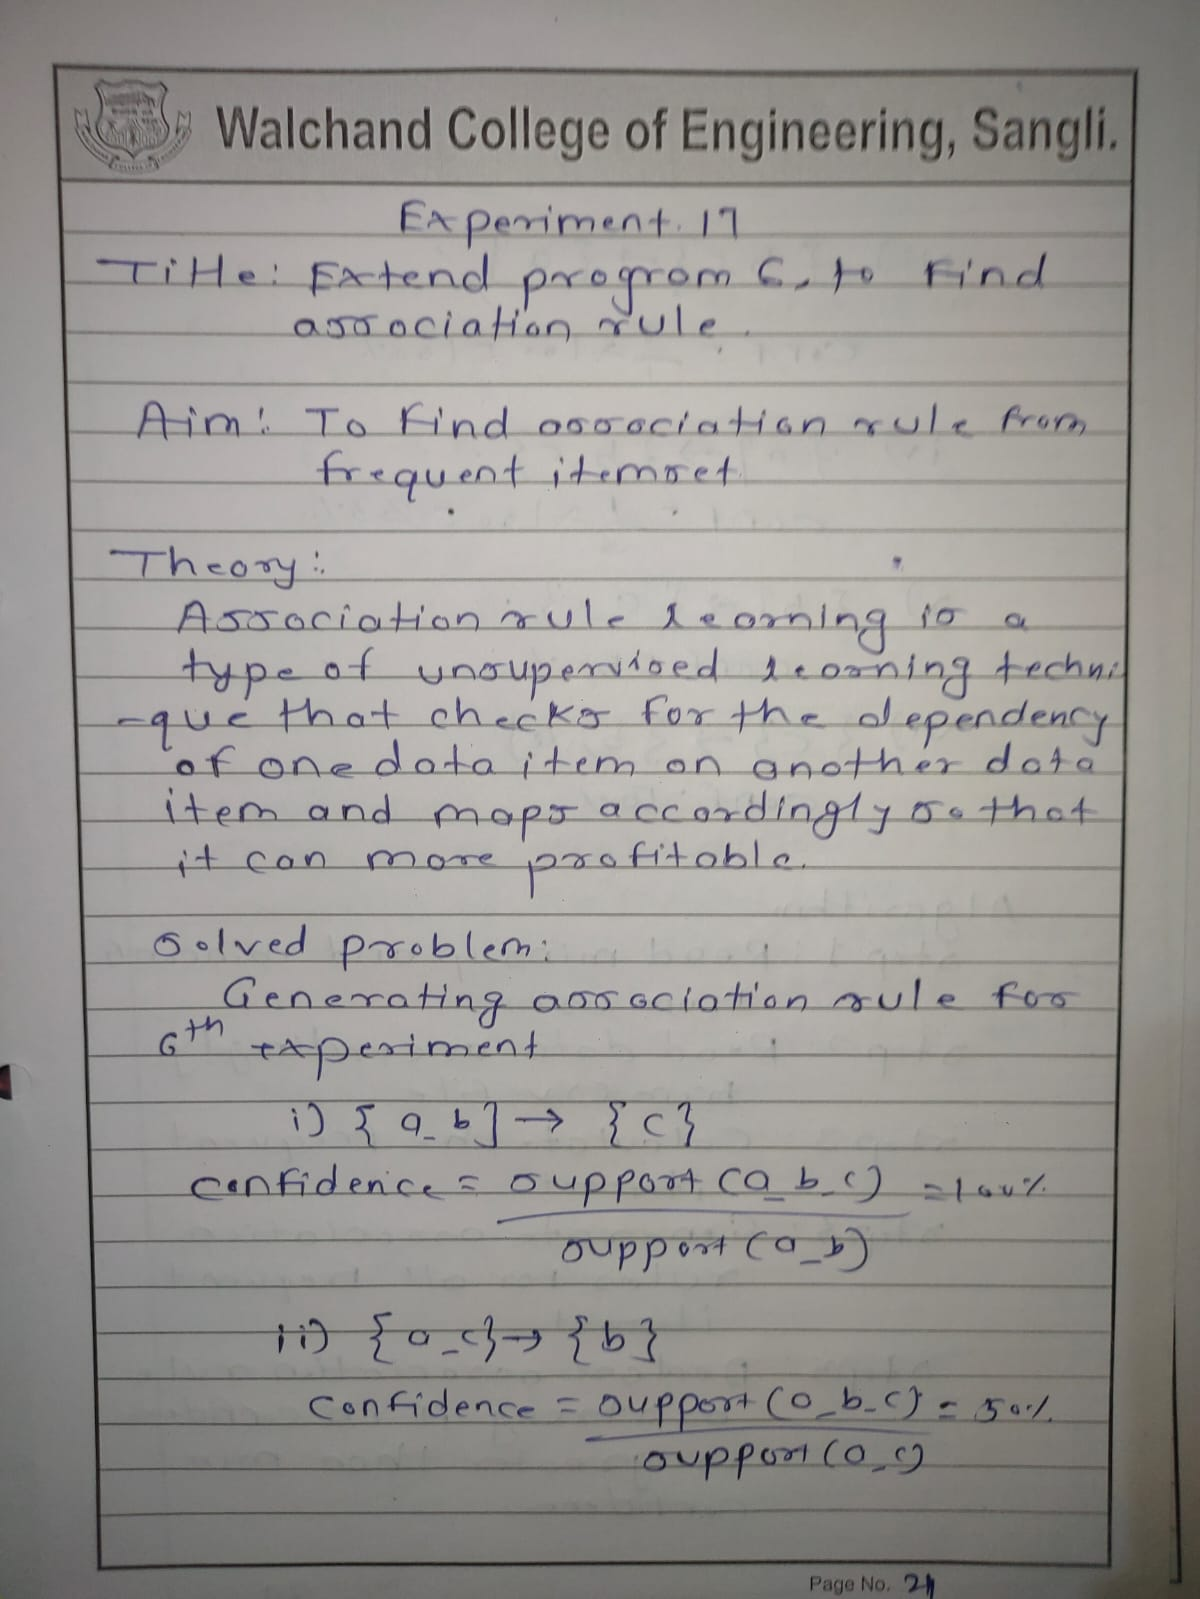 Walchand College of Engineering, Sangli.
Experiment. 17
Title: Extend program 6, to find
association rule.
Aim: To find association rule from
frequent itemset.
Theory:
Association rule learning is a
type of unsupervised learning techni
-que that checks for the dependency
of one data item on another data
item and maps accordingly so that
it can more profitable.
Solved problem:
Generating association rule for
6th experiment
i) { a_b] → {c}
confidence = support (a_b_c) = 100%
support (a_b)
ii) {a_c} → {b}
Confidence = support (a_b_c) = 50%
support (a_c)
Page No. 21